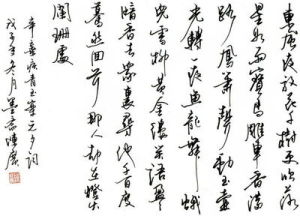 東風夜放花千樹更吹落
星如雨寶馬雕車香滿
路鳳簫聲動玉壺
光轉一夜魚龍舞蛾
兒雪柳黃金縷笑語盈盈
暗香去衆裏尋他千百度
驀然回首那人却在燈火
闌珊處
辛棄疾青玉案元夕詞
戊子年冬月